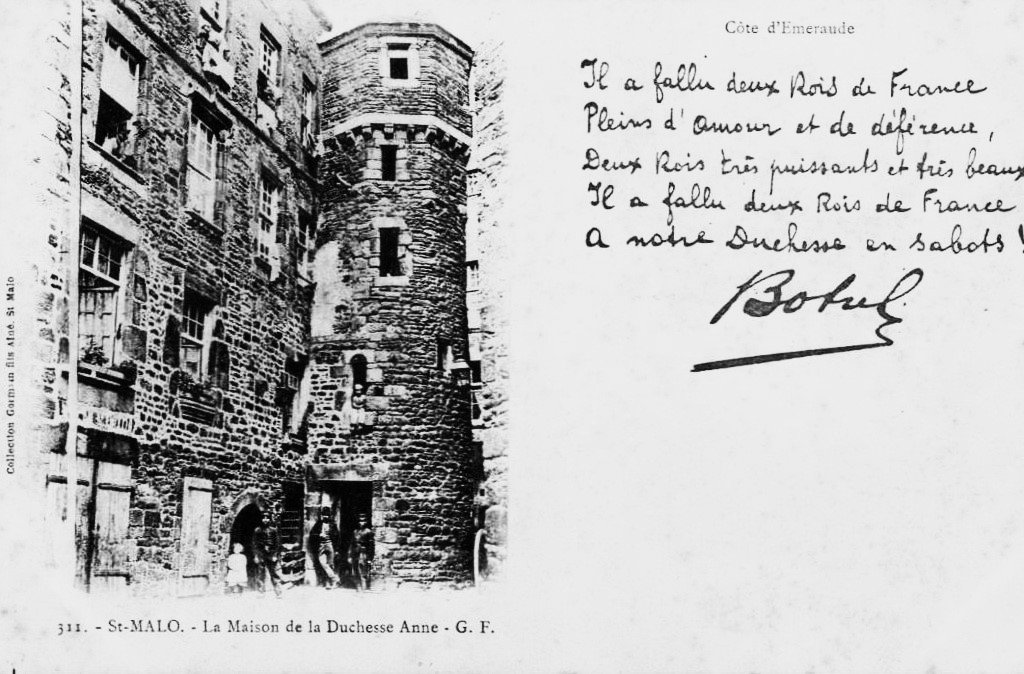 Côte d'Emeraude
Il a fallu deux Rois de France
Pleins d'amour et de déférence,
Deux Rois très puissants et très beaux
Il a fallu deux Rois de France
A notre Duchesse en sabots !
Botrel
Collection Germain fils Aîné. St Malo
311. - St-MALO. - La Maison de la Duchesse Anne - G. F.